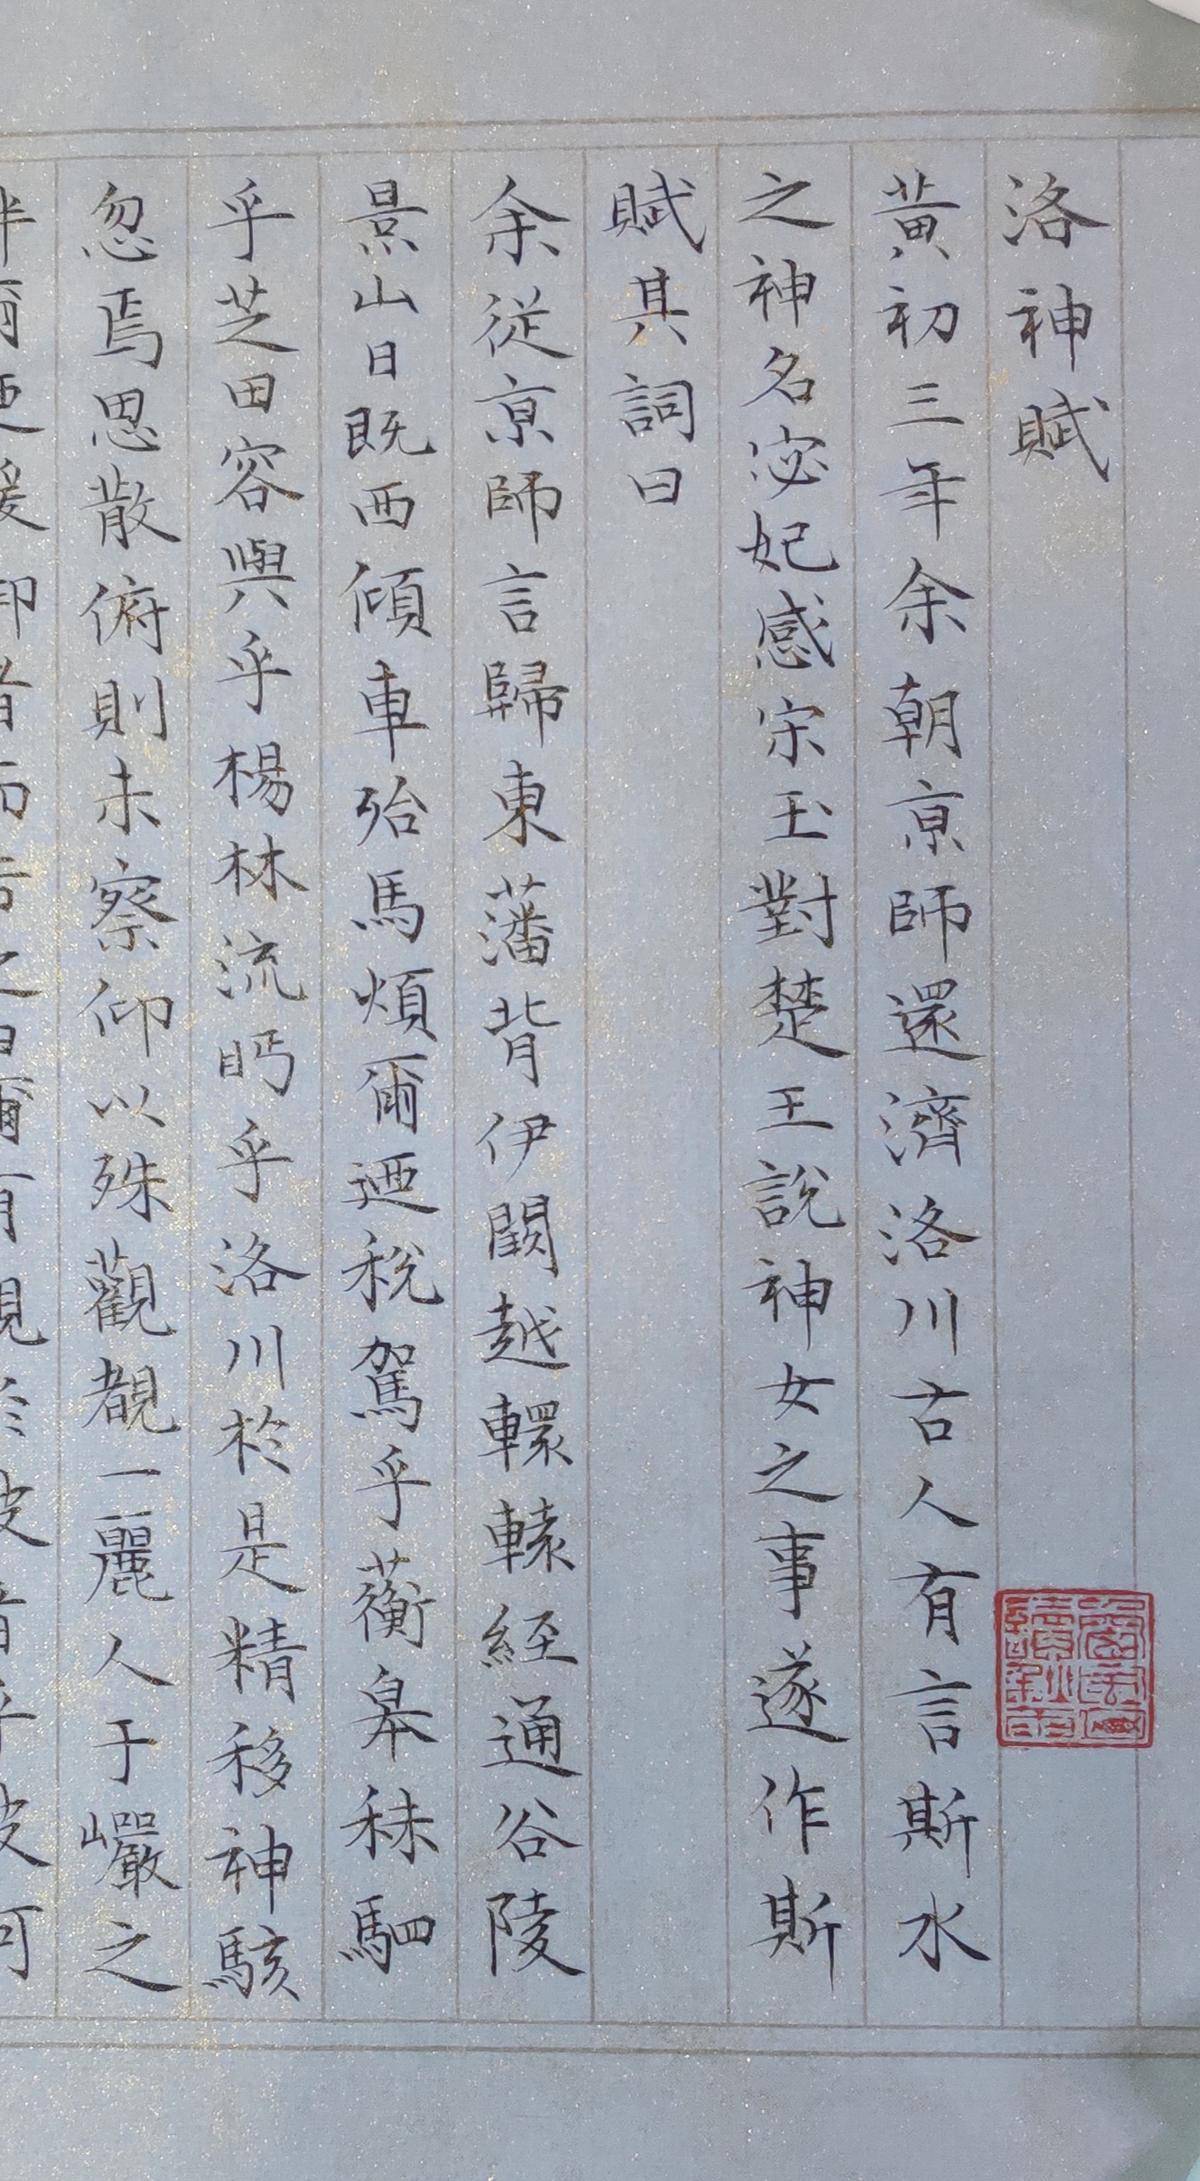 洛神賦
黃初三年余朝京師還濟洛川古人有言斯水
之神名宓妃感宋玉對楚王說神女之事遂作斯
賦其詞曰
余從京師言歸東藩背伊闕越轘轅經通谷陵
景山日既西傾車殆馬煩爾迺稅駕乎蘅皋秣駟
乎芝田容與乎楊林流眄乎洛川於是精移神駭
忽焉思散俯則未察仰以殊觀覩一麗人于巖之